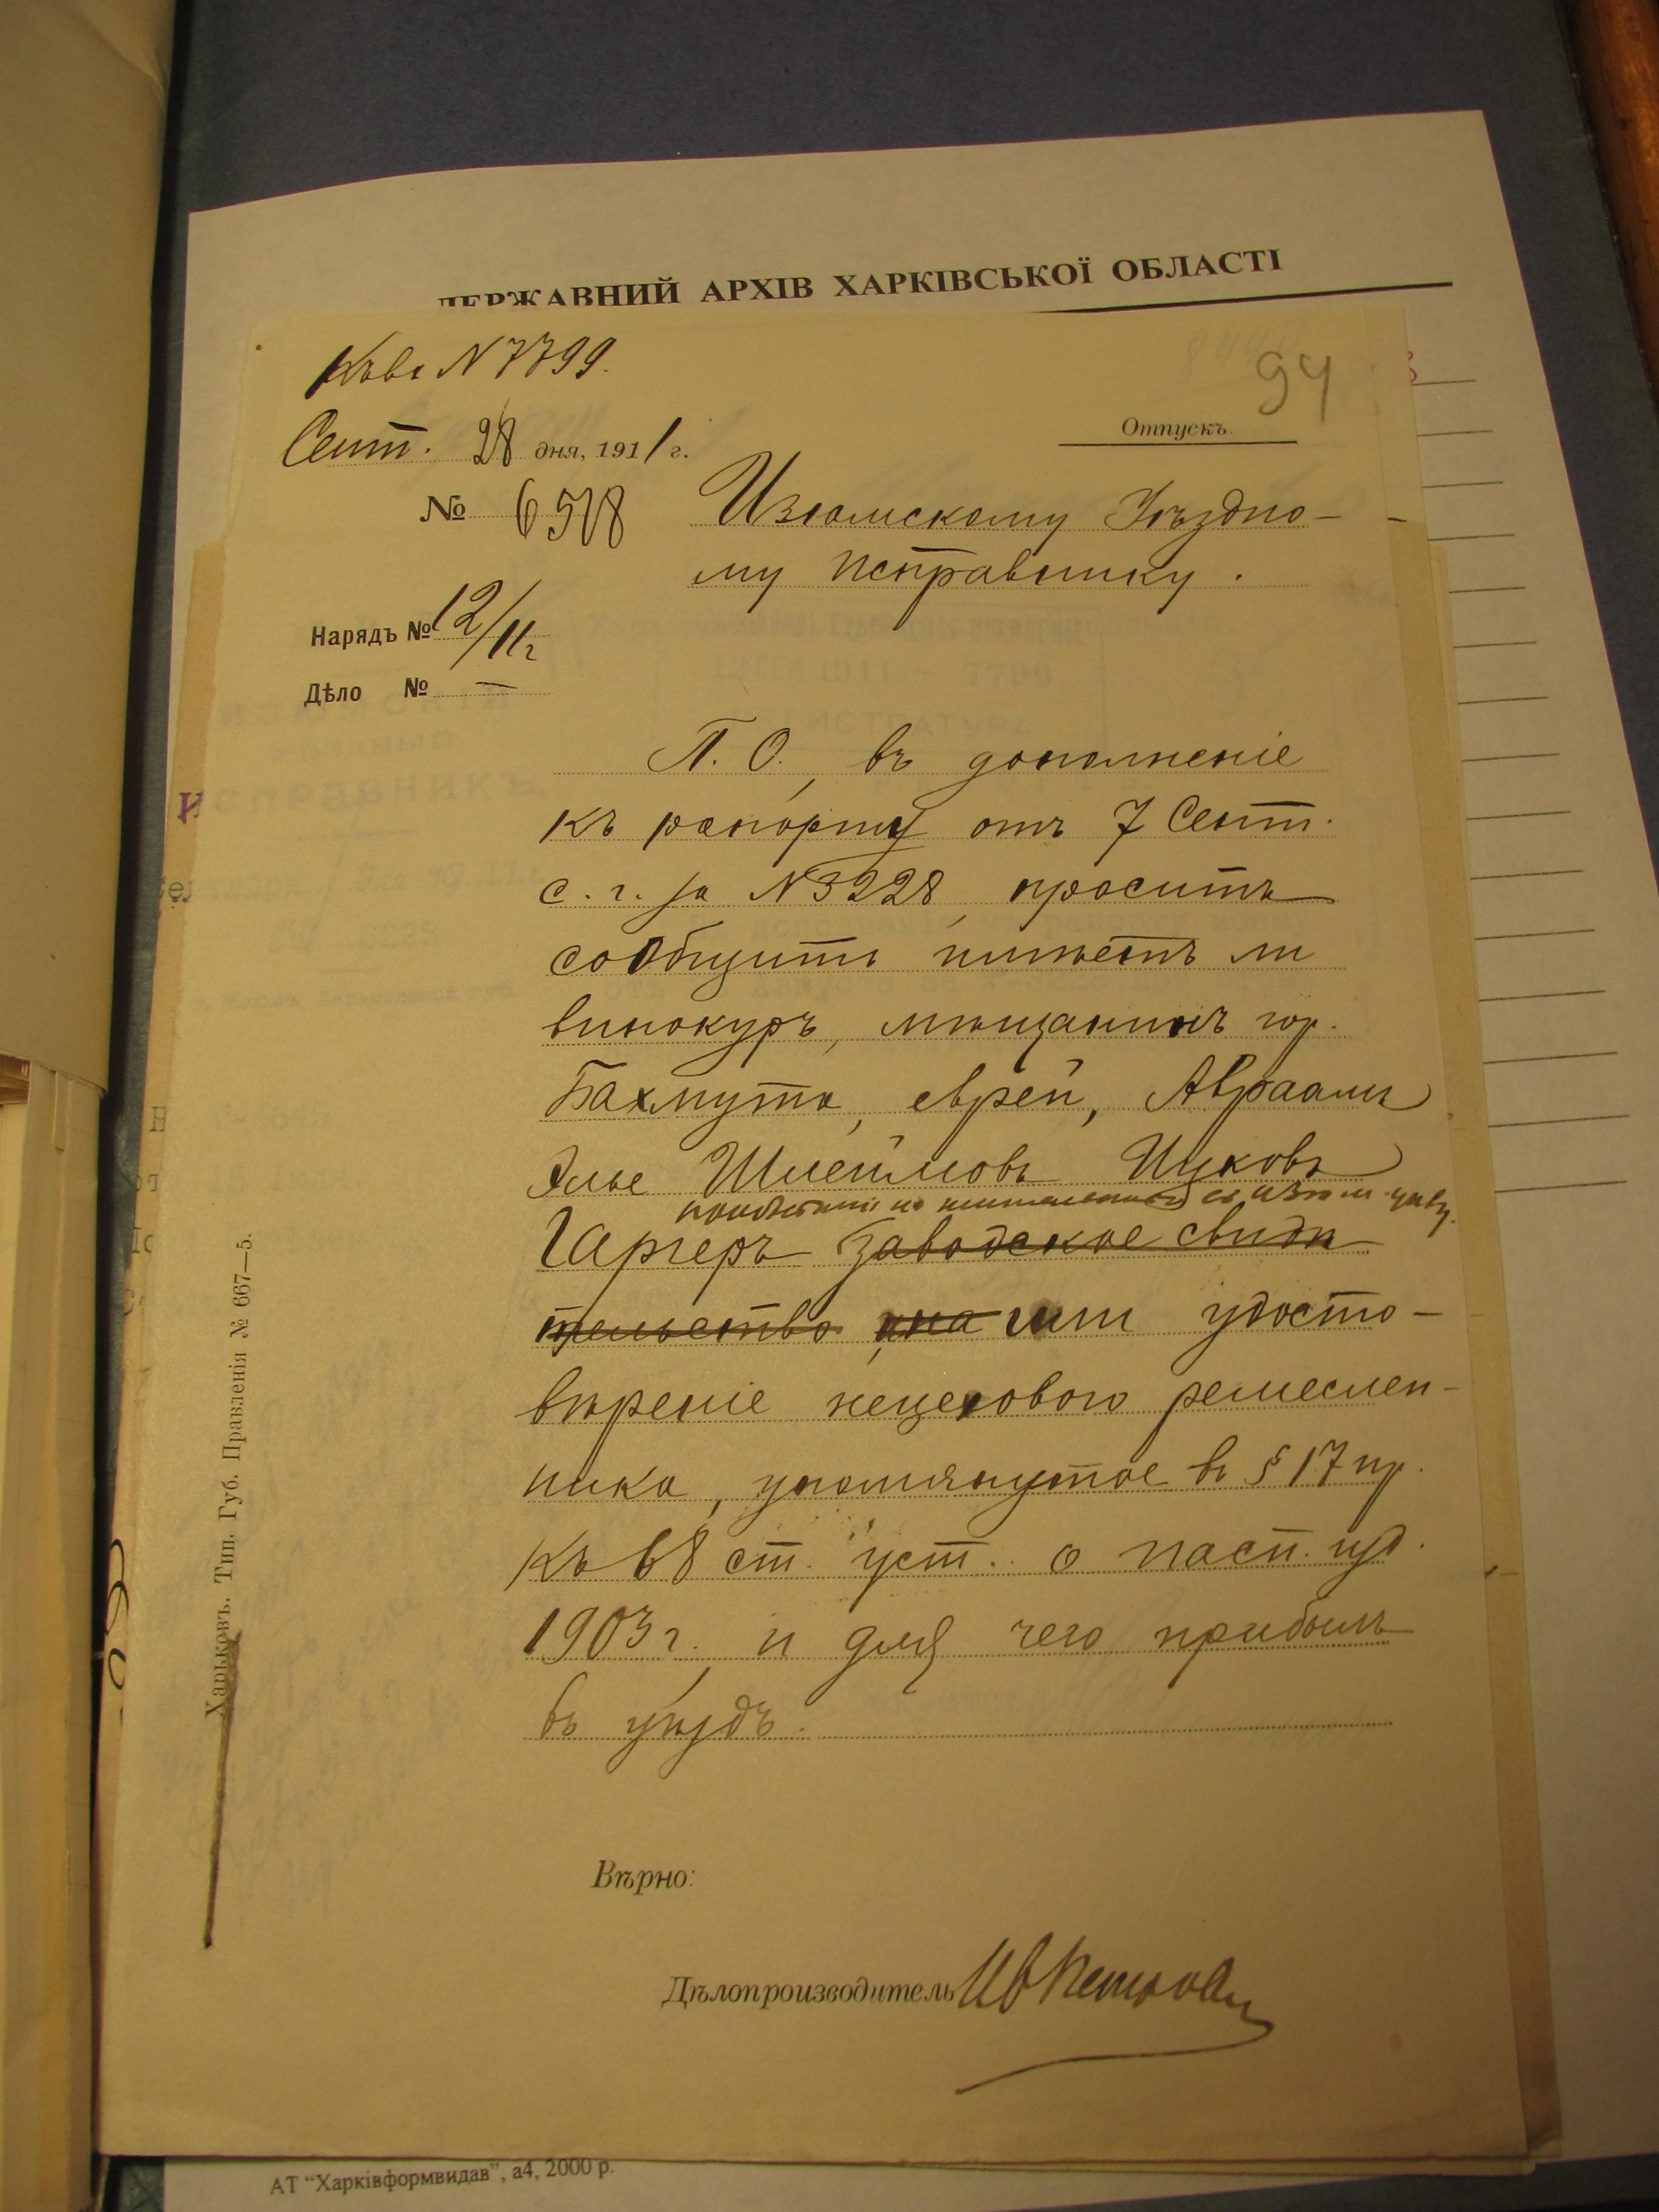 ДЕРЖАВНИЙ АРХІВ ХАРКІВСЬКОЇ ОБЛАСТІ
Къ вх N 7799.
94
Отпускъ.
Сент. 28 дня, 1911 г.
№ 6578
Изюмскому Уѣздно-
му Исправнику.
Нарядъ № 12/11 г
Дѣло № —
П. О., въ дополненіе
къ рапорту отъ 7 Сент.
с. г. за N 3228, проситъ
сообщить имѣетъ ли
винокуръ, мѣщанинъ гор.
Бахмута, еврей, Авраамъ
Элье Шлеймовъ Ицковъ
Гаргеръ заводское свидѣ
тельство или удосто-
вѣреніе нецехового ремеслен-
ника, упомянутое въ § 17 пр.
къ 68 ст. уст. о пасп. изд.
1903 г., и для чего прибылъ
въ уѣздъ.
Вѣрно:
Дѣлопроизводитель
Харьковъ. Тип. Губ. Правленія № 667—5.
АТ “Харківформвидав”, а4, 2000 р.